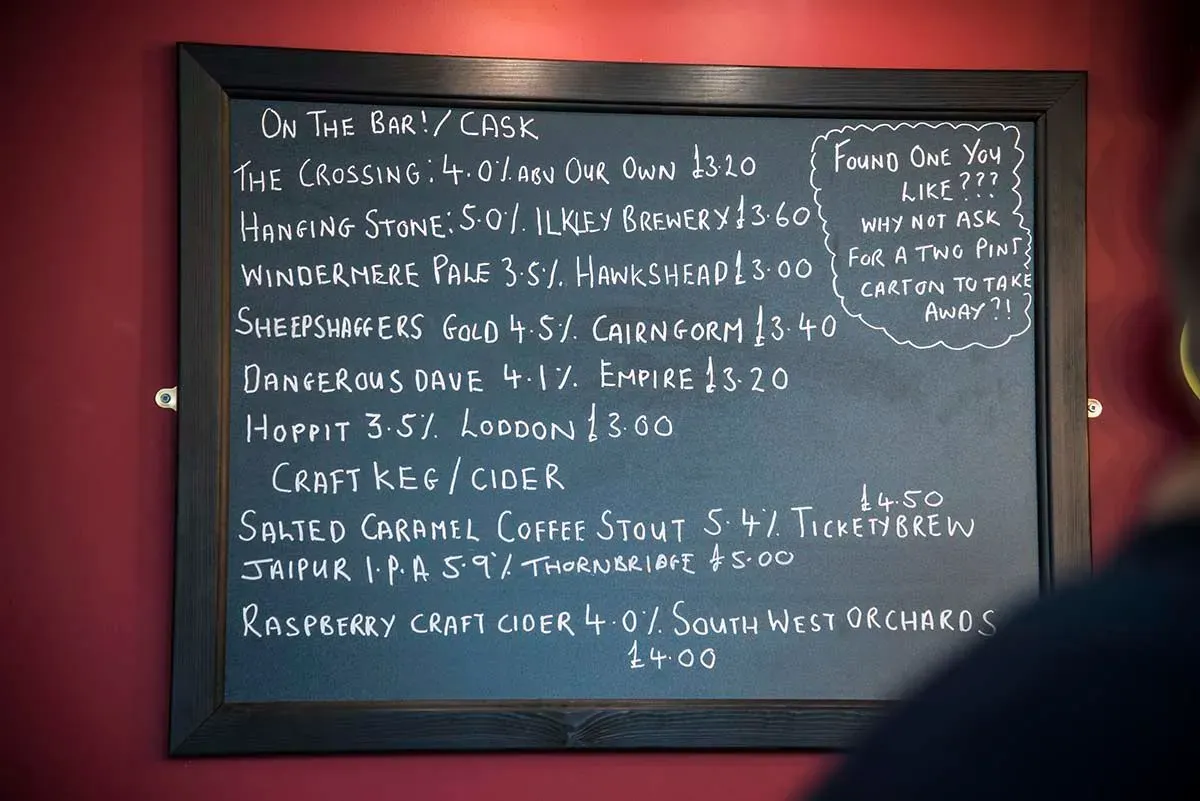 ON THE BAR!/ CASK
THE CROSSING: 4.0% ABV OUR OWN £3.20
HANGING STONE: 5.0% ILKLEY BREWERY £3.60
WINDERMERE PALE 3.5% HAWKSHEAD £3.00
SHEEPSHAGGERS GOLD 4.5% CAIRNGORM £3.40
DANGEROUS DAVE 4.1% EMPIRE £3.20
HOPPIT 3.5% LODDON £3.00
CRAFT KEG / CIDER
£4.50
SALTED CARAMEL COFFEE STOUT 5.4% TICKETYBREW
JAIPUR I.P.A 5.9% THORNBRIDGE £5.00
RASPBERRY CRAFT CIDER 4.0% SOUTH WEST ORCHARDS
£4.00
FOUND ONE YOU
LIKE???
WHY NOT ASK
FOR A TWO PINT
CARTON TO TAKE
AWAY?!